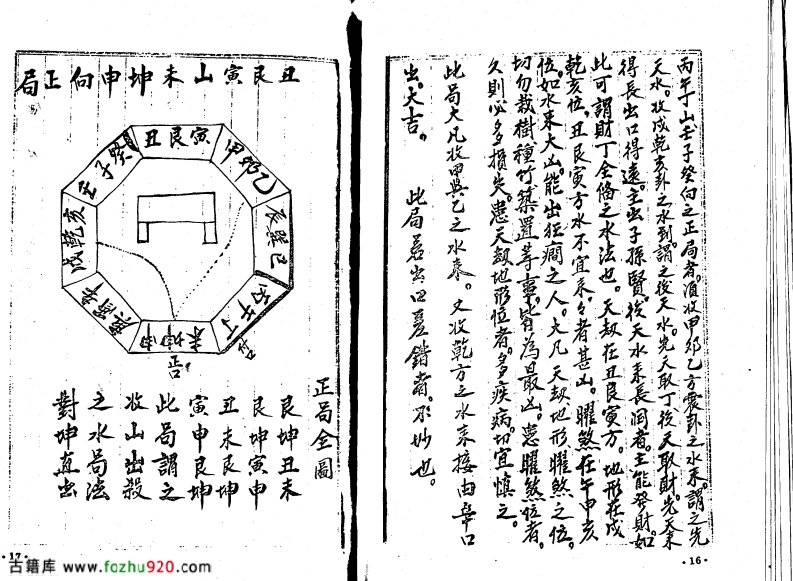 丙午丁山壬子癸向之正局者。須收甲卯乙方震卦之水來。謂之先
天水。收戌乾亥卦之水到。謂之後天水。先天取丁後天取財。先天來
得長出口得遠。主出子孫賢。後天水來長濶者。主能發財。如
此可謂財丁全條之水法也。天劫在丑艮寅方。地形在戌
乾亥位。丑艮寅方水不宜來。々者甚凶。曜煞在午甲亥
位。如水來大凶。能出狂癎之人。大凡天劫地形曜煞之位。
切勿栽樹種竹築置等事。皆為最凶。患曜煞位者。
久則必多損失。患天劫地形位者。多疾病。切宜慎之。
此局大凡收甲巽乙之水來。又收乾方之水來接由辛口
出。大吉。 此局若出口差錯者。不妙也。
·16·
丑艮寅山未坤申向正局
丑艮寅
甲卯乙
辰巽巳
丙午丁
未坤申
庚酉辛
戌乾亥
壬子癸
正局全圖
艮坤丑未
艮坤寅申
丑未艮坤
寅申艮坤
此局謂之
收山出殺
之水局法
對坤直出
·17·
古籍库 www.fozhu920.com